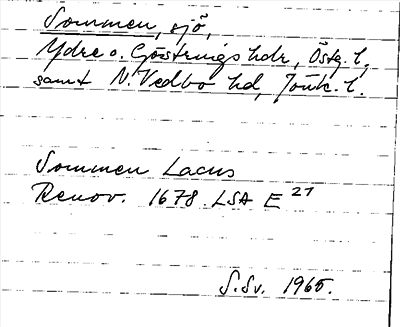 Sommen, sjö,
Ydre o. Göstrings hdr, Östg. l,
samt N. Vedbo hd, Jönk. l.
Sommen Lacus
Renov. 1678. LSA E 21
S.Sv. 1965.